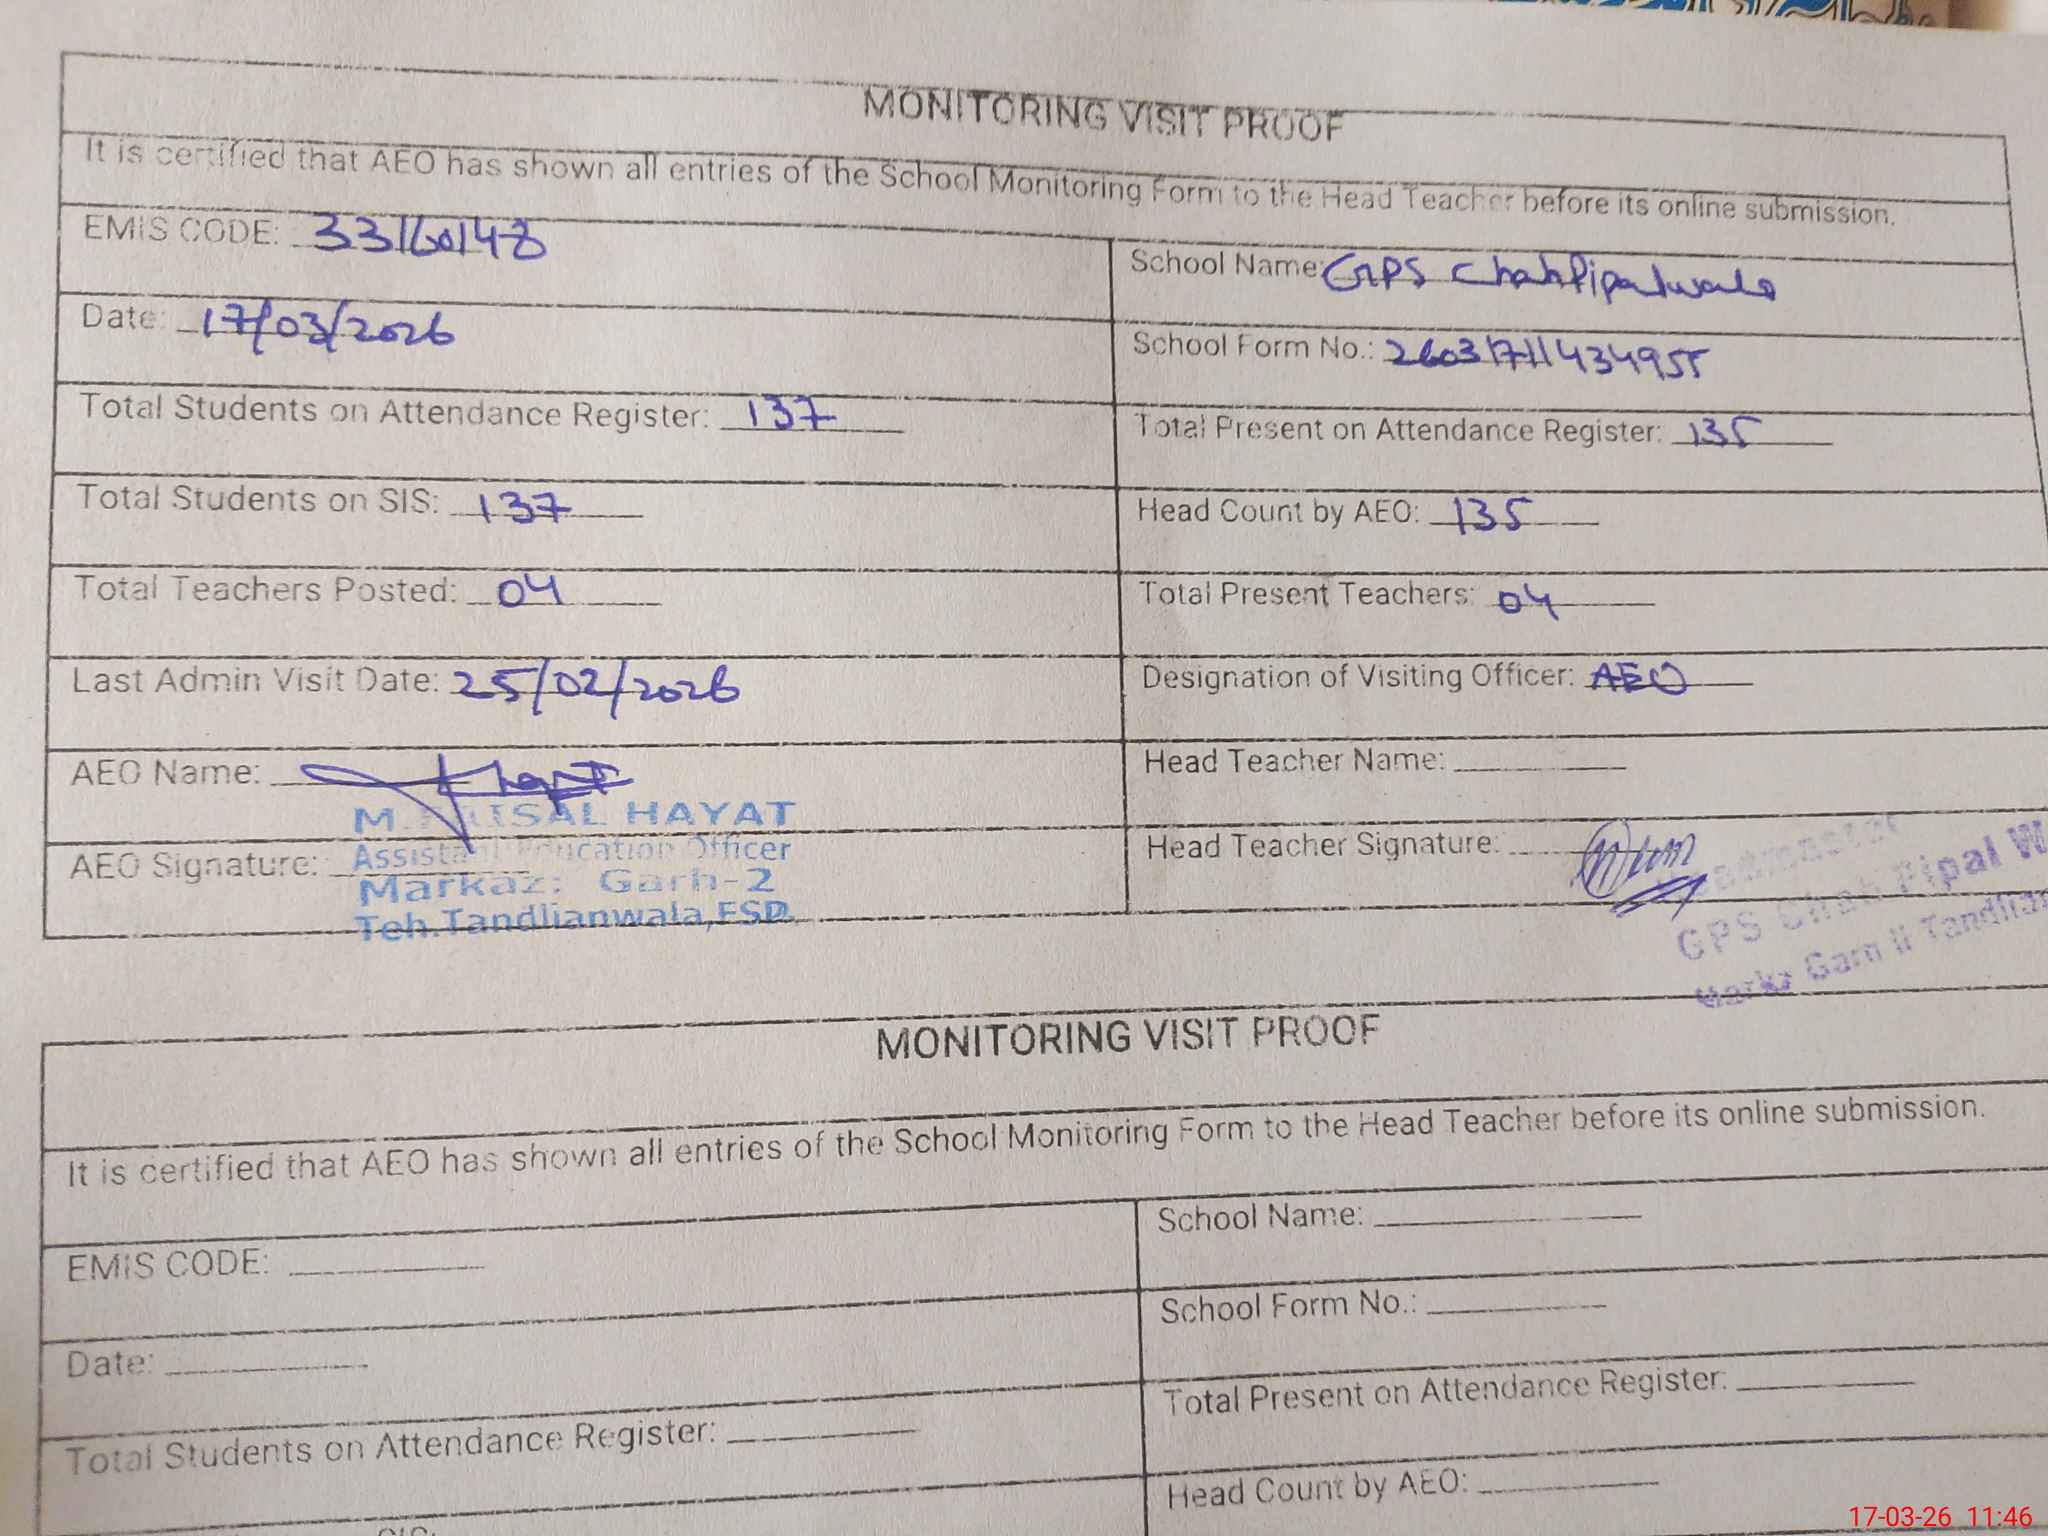 MONITORING VISIT PROOF
It is certified that AEO has shown all entries of the School Monitoring Form to the Head Teacher before its online submission.
EMIS CODE: 33160148
School Name: GPS Chah Pipalwala
Date: 17/03/2026
School Form No.: 26031711434955
Total Students on Attendance Register: 137
Total Present on Attendance Register: 135
Total Students on SIS: 137
Head Count by AEO: 135
Total Teachers Posted: 04
Total Present Teachers: 04
Last Admin Visit Date: 25/02/2026
Designation of Visiting Officer: AEO
AEO Name:
Head Teacher Name:
M. HAYAT
Assistant Education Officer
AEO Signature:
Head Teacher Signature:
Markaz: Garh-2
Teh.Tandlianwala,FSD.
GPS Chah Pipal
Garh II
MONITORING VISIT PROOF
It is certified that AEO has shown all entries of the School Monitoring Form to the Head Teacher before its online submission.
EMIS CODE:
School Name:
Date:
School Form No.:
Total Students on Attendance Register:
Total Present on Attendance Register:
Head Count by AEO:
17-03-26 11:46